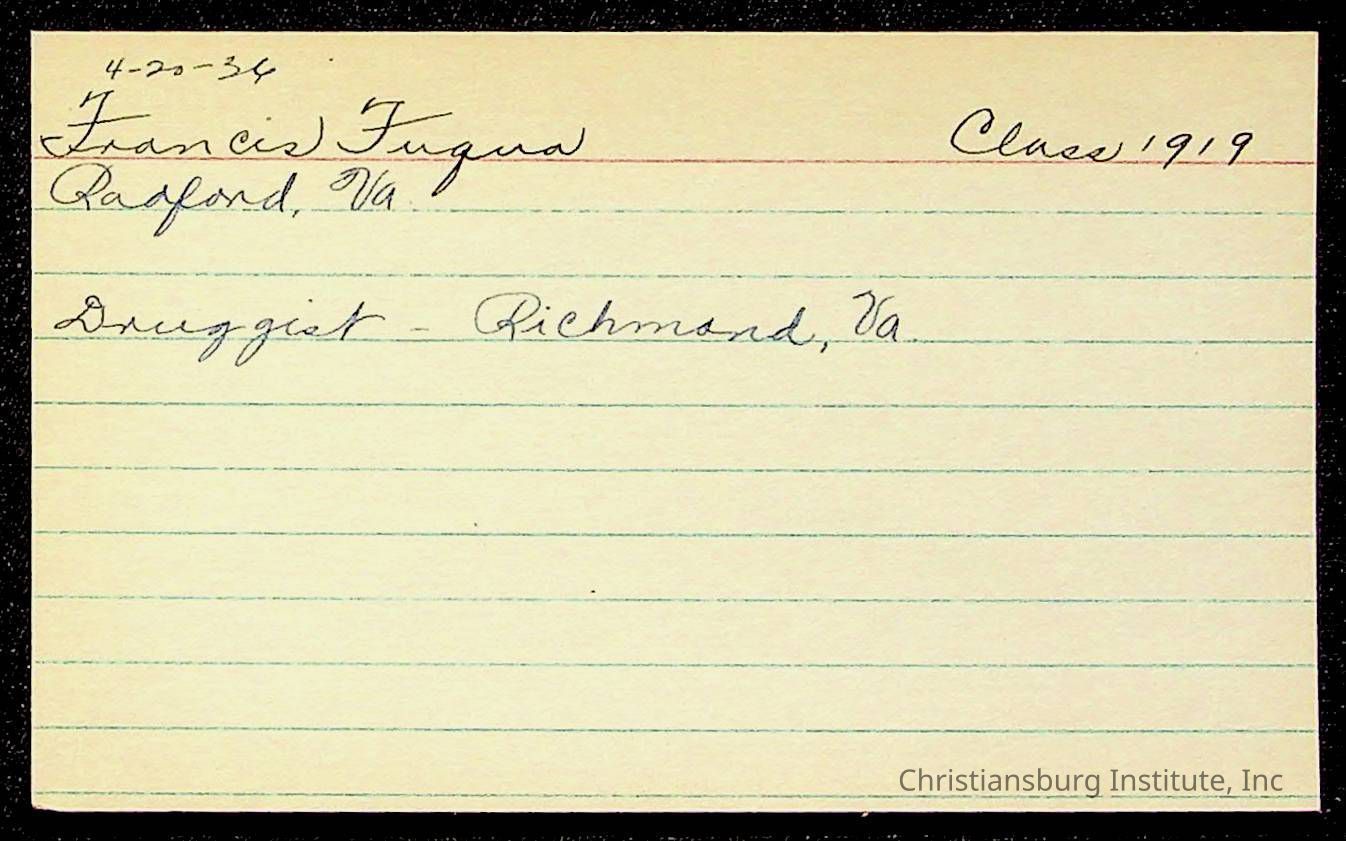 4-20-36
Francis Fuqua Class 1919
Radford, Va
Druggist - Richmond, Va.
Christiansburg Institute, Inc